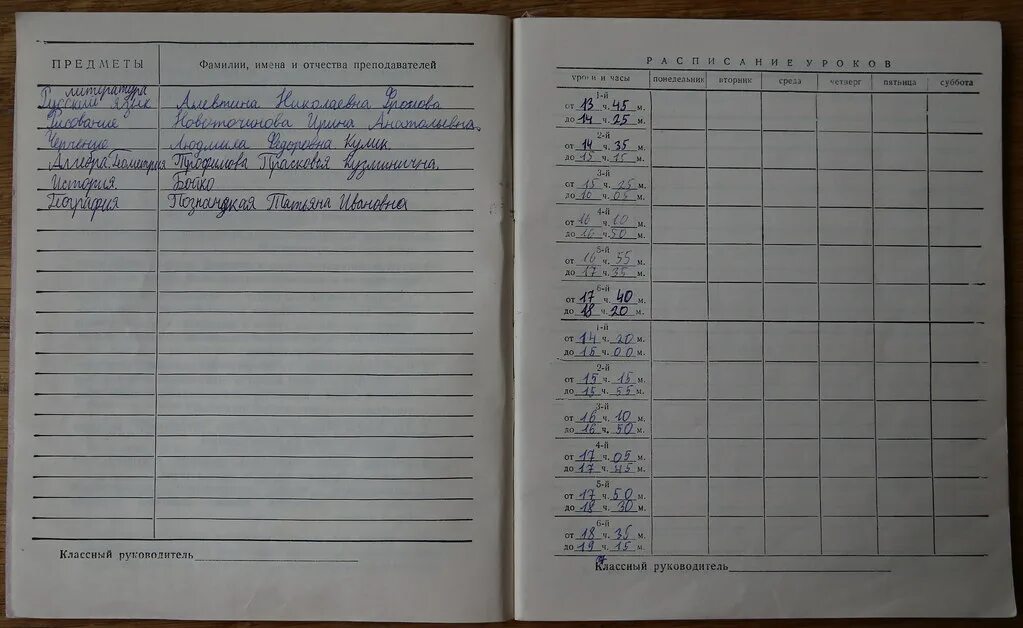 ПРЕДМЕТЫ
Фамилии, имена и отчества преподавателей
литература
Русский язык Алевтина Николаевна Фролова
Рисование Новоточинова Ирина Анатольевна
Черчение Людмила Федоровна Кулик
Алгебра. Геометрия Трофимова Прасковья Кузминична
История Бойко
География Познандкая Татьяна Ивановна
Классный руководитель
РАСПИСАНИЕ УРОКОВ
уроки и часы понедельник вторник среда четверг пятница суббота
1-й
от 13 ч. 45 м.
до 14 ч. 25 м.
2-й
от 14 ч. 35 м.
до 15 ч. 15 м.
3-й
от 15 ч. 25 м.
до 16 ч. 05 м.
4-й
от 16 ч. 10 м.
до 16 ч. 50 м.
5-й
от 16 ч. 55 м.
до 17 ч. 35 м.
6-й
от 17 ч. 40 м.
до 18 ч. 20 м.
1-й
от 14 ч. 20 м.
до 15 ч. 00 м.
2-й
от 15 ч. 15 м.
до 15 ч. 55 м.
3-й
от 16 ч. 10 м.
до 16 ч. 50 м.
4-й
от 17 ч. 05 м.
до 17 ч. 45 м.
5-й
от 17 ч. 50 м.
до 18 ч. 30 м.
6-й
от 18 ч. 35 м.
до 19 ч. 15 м.
Классный руководитель